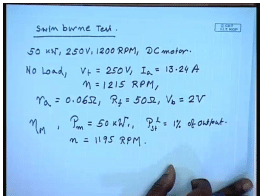 Swinburne Test.
50 kW, 250V, 1200 RPM, DC motor.
No Load, Vt = 250V, Ia = 13.24 A
n = 1215 RPM,
ra = 0.06Ω, Rf = 50Ω, Vb = 2V
ηM, Pm = 50 kW, PstL = 1% of output.
n = 1195 RPM.